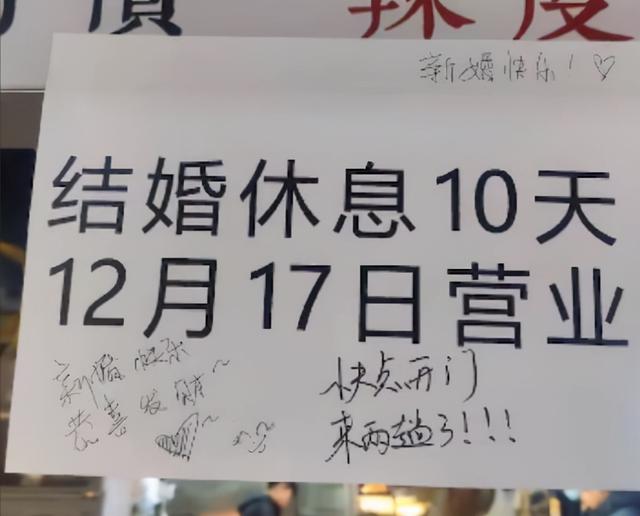 辣度
新婚快乐！♡
结婚休息10天
12月17日营业
新婚快乐
恭喜发财~
快点开门
来两趟了!!!